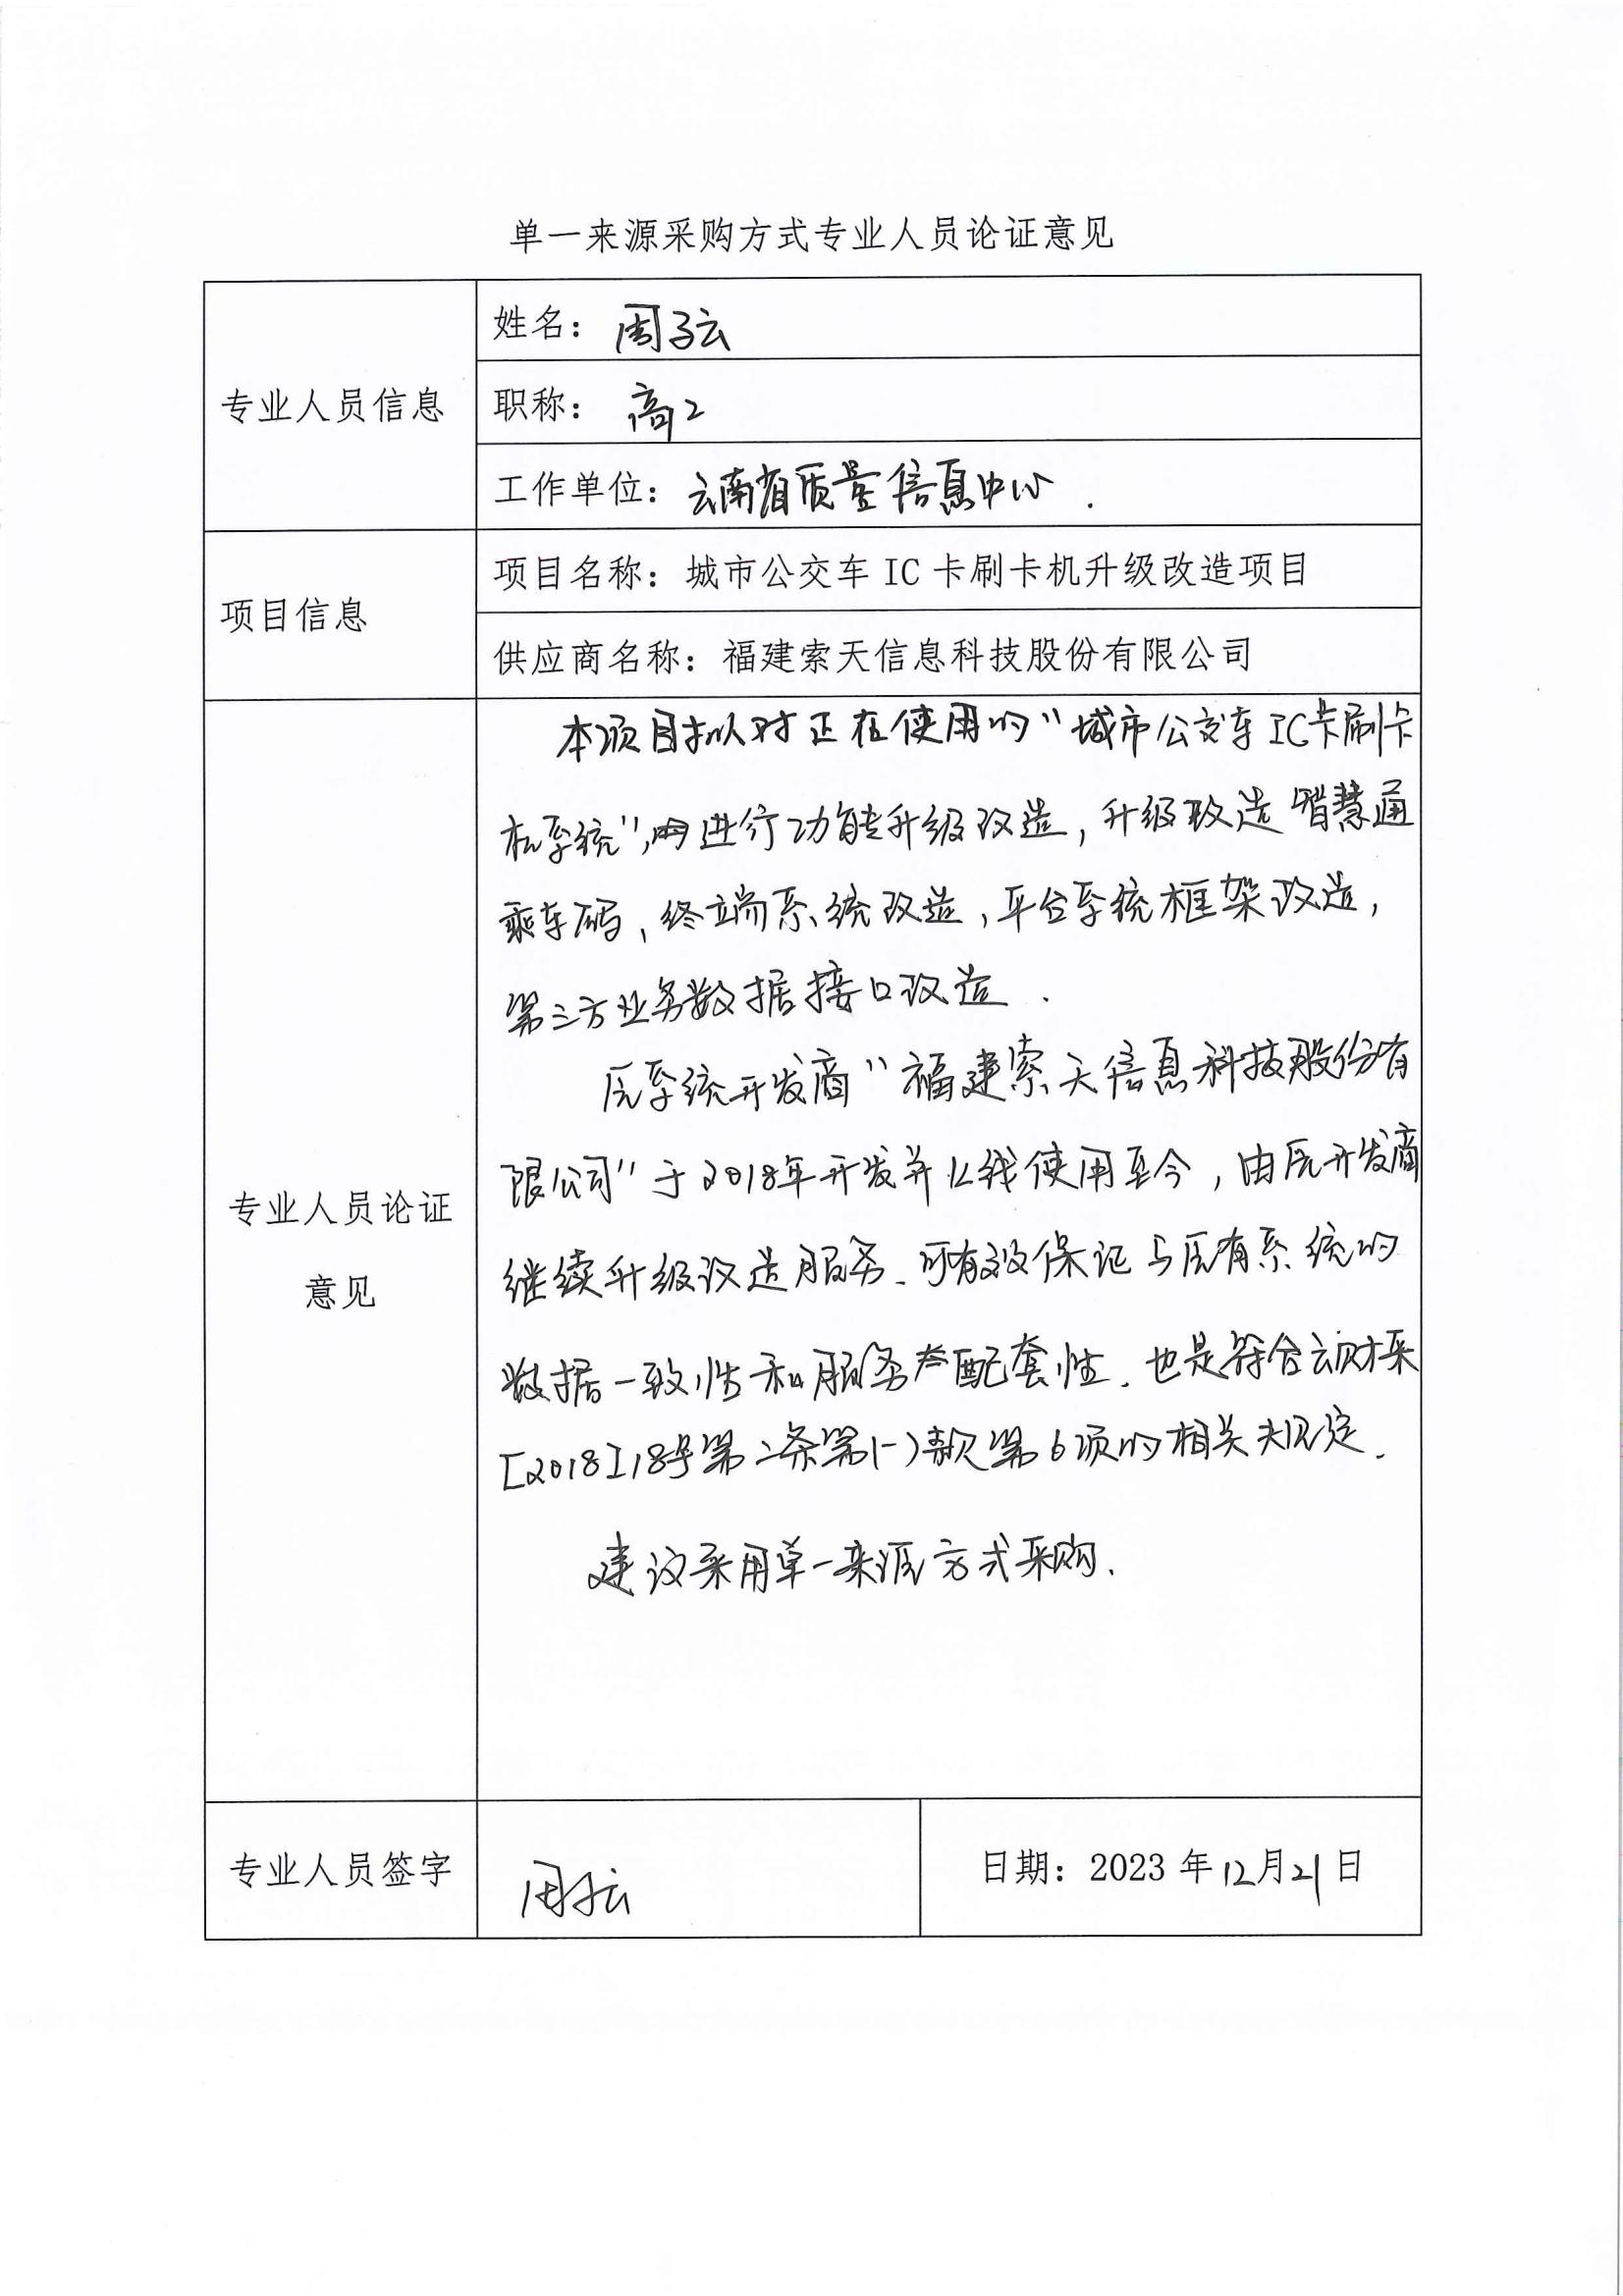 单一来源采购方式专业人员论证意见
专业人员信息
姓名：周子云
职称：高工
工作单位：云南省质量信息中心.
项目信息
项目名称：城市公交车 IC 卡刷卡机升级改造项目
供应商名称：福建索天信息科技股份有限公司
专业人员论证
意见
本项目拟对正在使用的"城市公交车IC卡刷卡
机系统",进行功能升级改造,升级改造智慧通
乘车码,终端系统改造,平台系统框架改造,
第三方业务数据接口改造.
原系统开发商"福建索天信息科技股份有
限公司"于2018年开发并上线使用至今,由原开发商
继续升级改造服务、可有效保证与原有系统的
数据一致性和服务配套性.也是符合云财采
[2018]18号第二条第(一)款第6项的相关规定.
建议采用单一来源方式采购.
专业人员签字
周子云
日期：2023 年12月21日